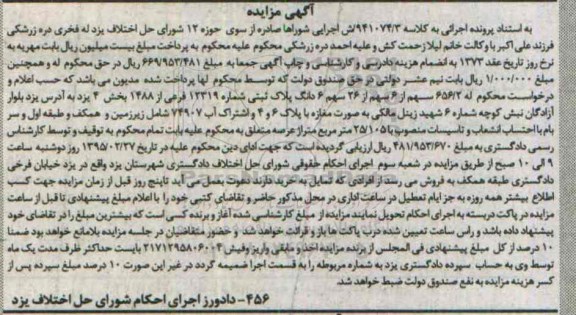 آگهی مزایده
به استناد پرونده اجرائی به کلاسه ۹۴۱۰۷۴/۳/ش اجرایی شوراها صادره از سوی حوزه ۱۲ شورای حل اختلاف یزد له فخری دره زرشکی
فرزند علی اکبر با وکالت خانم لیلا زحمت کش و علیه احمد دره زرشکی محکوم علیه محکوم به پرداخت مبلغ بیست میلیون ریال بابت مهریه به
نرخ روز تاریخ عقد ۱۳۷۳ به انضمام هزینه دادرسی و کارشناسی و چاپ آگهی جمعا به مبلغ ۶۶۹/۹۵۳/۴۸۱ ریال در حق محکوم له و همچنین
مبلغ ۱/۰۰۰/۰۰۰ ریال بابت نیم عشر دولتی در حق صندوق دولت که توسط محکوم لها پرداخت شده مدیون می باشد که حسب اعلام و
درخواست محکوم له ۶۵۶/۲ سهم از ۶ سهم از ۲۶ سهم ۶ دانگ پلاک ثبتی شماره ۱۲۳۱۹ فرعی از ۱۴۸۸ بخش ۴ یزد به آدرس یزد بلوار
آزادگان نبش کوچه شماره ۶ شهید زینل مالکی به صورت مغازه با پلاک ۶ و ۴ و اشتراک آب ۷۴۹۰۷ شامل زیرزمین و همکف و طبقه اول و سر
بام با احتساب انشعاب و تاسیسات منصوب با ۲۵/۱۰۵ متر مربع متراژ عرصه متعلق به محکوم علیه بابت تمام محکوم به توقیف و توسط کارشناس
رسمی دادگستری به مبلغ ۴۸۱/۹۵۳/۶۷۰ ریال ارزیابی گردیده است که جهت ادای دین محکوم علیه در تاریخ ۱۳۹۵/۰۲/۲۷ روز دوشنبه ساعت
۹ الی ۱۰ صبح از طریق مزایده در شعبه سوم اجرای احکام حقوقی شورای حل اختلاف دادگستری شهرستان یزد واقع در یزد خیابان فرخی
دادگستری طبقه همکف به فروش می رسد از افرادی که تمایل به خرید دارند دعوت بعمل می آید تا پنج روز قبل از زمان مزایده جهت کسب
اطلاع بیشتر همه روزه به جز ایام تعطیل در ساعت اداری در محل مذکور حاضر و تقاضای کتبی خود را با اعلام مبلغ پیشنهادی تا قبل از ساعت
مزایده در پاکت دربسته به اجرای احکام تحویل نمایند مزایده از مبلغ کارشناسی شده آغاز و برنده کسی است که بیشترین مبلغ را در تقاضای خود
پیشنهاد داده باشد و راس ساعت تعیین شده درب پاکت ها باز و قرائت خواهد شد و حضور متقاضیان در جلسه مزایده بلامانع خواهد بود ضمنا
۱۰ درصد از کل مبلغ پیشنهادی فی المجلس از برنده مزایده اخذ و مابقی واریز وفیش ۲۱۷۱۲۹۵۸۰۶۰۰۴ بایست حداکثر ظرف مدت یک ماه
توسط وی به حساب سپرده دادگستری یزد به شماره مربوطه را به قسمت اجرا ضمیمه گردد در غیر این صورت ۱۰ درصد مبلغ سپرده پس از
کسر هزینه مزایده به نفع صندوق دولت ضبط خواهد شد.
۴۵۶- دادورز اجرای احکام شورای حل اختلاف یزد